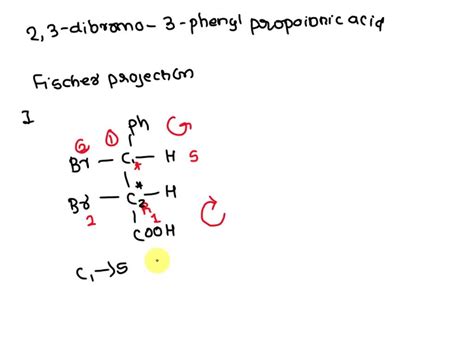 2,3-dibromo-3-phenyl propoionic acid
Fischer projection
I
Ph
① 
Br - C₁ - H 5
*
*
Br - C₂ - H
2 R 1
COOH
C₁ → S